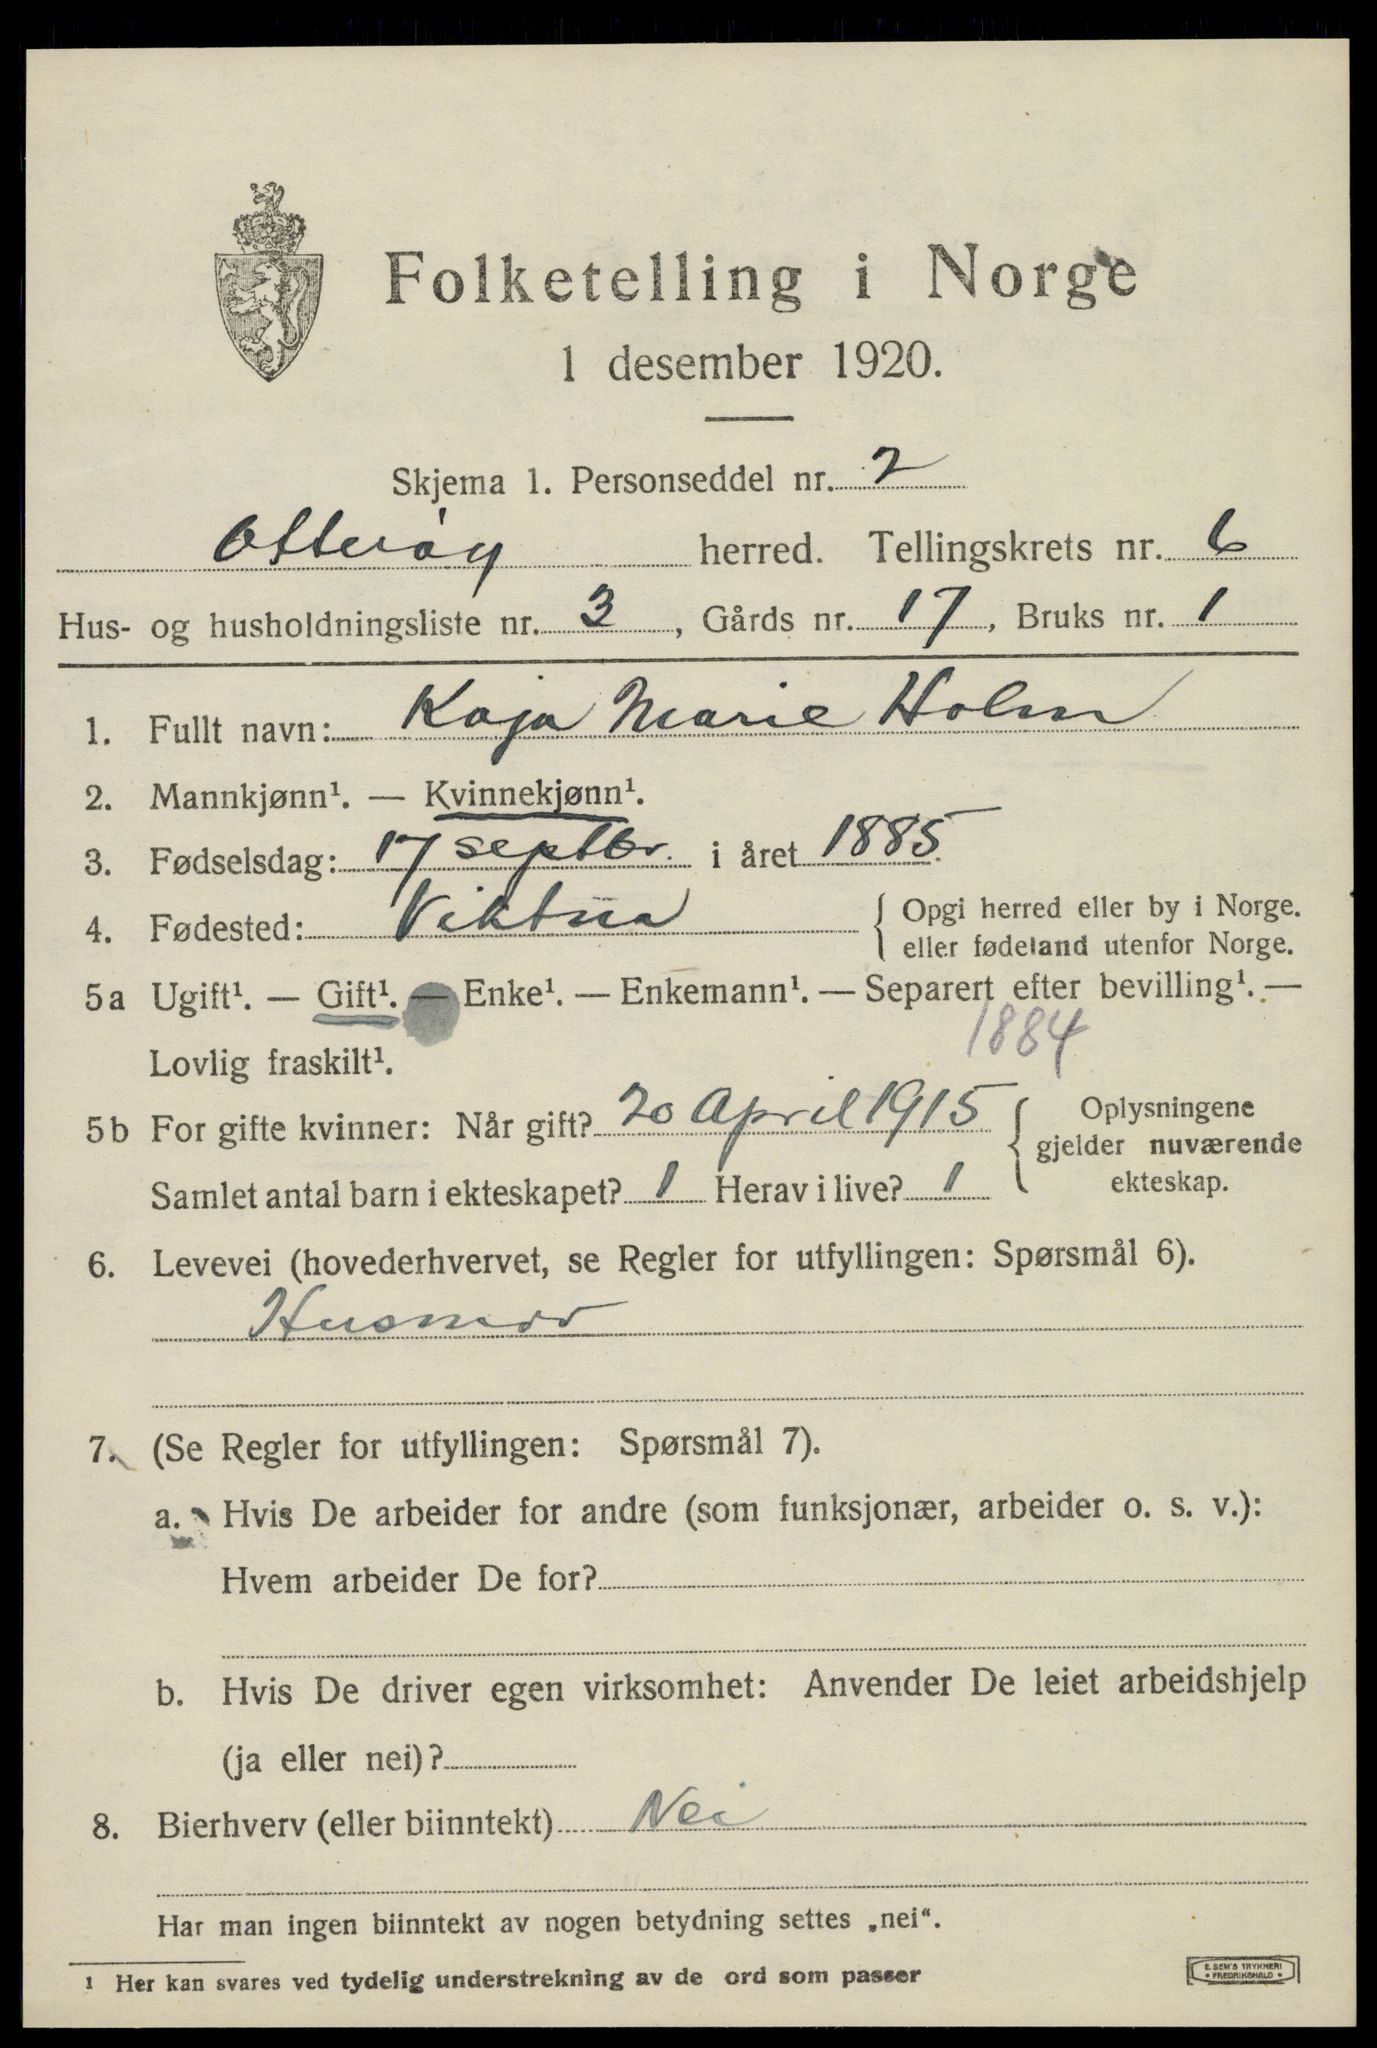 Folketelling i Norge
1 desember 1920.
Skjema 1. Personseddel nr. 2
Otterøy herred. Tellingskrets nr. 6
Hus- og husholdningsliste nr. 3, Gårds nr. 17, Bruks nr. 1
1. Fullt navn: Kaja Marie Holm
2. Mannkjønn¹. — Kvinnekjønn¹.
3. Fødselsdag: 17 septbr. i året 1885.
4. Fødested: { Opgi herred eller by i Norge.
eller fødeland utenfor Norge.
5a Ugift¹. — Gift¹. — Enke¹. — Enkemann¹. — Separert efter bevilling¹. —
Lovlig fraskilt¹. 1884
5b For gifte kvinner: Når gift? 20 April 1915 { Oplysningene
gjelder nuværende
Samlet antal barn i ekteskapet? 1 Herav i live? 1 ekteskap.
6. Levevei (hovederhvervet, se Regler for utfyllingen: Spørsmål 6).
Husmor
7. (Se Regler for utfyllingen: Spørsmål 7).
a. Hvis De arbeider for andre (som funksjonær, arbeider o. s. v.):
Hvem arbeider De for?
b. Hvis De driver egen virksomhet: Anvender De leiet arbeidshjelp
(ja eller nei)?
8. Bierhverv (eller biinntekt) Nei
Har man ingen biinntekt av nogen betydning settes „nei“.
1 Her kan svares ved tydelig understrekning av de ord som passer
E. SEM'S TRYKKERI
FREDRIKSHALD